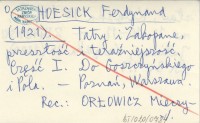 O HOESICK Ferdynand
(1921). Tatry i Zakopane,
przeszłość i teraźniejszość.
Część I. Do Goszczyńskiego
i Pola. — Poznań, Warszawa.
Rec.: ORŁOWICZ Mieczy-